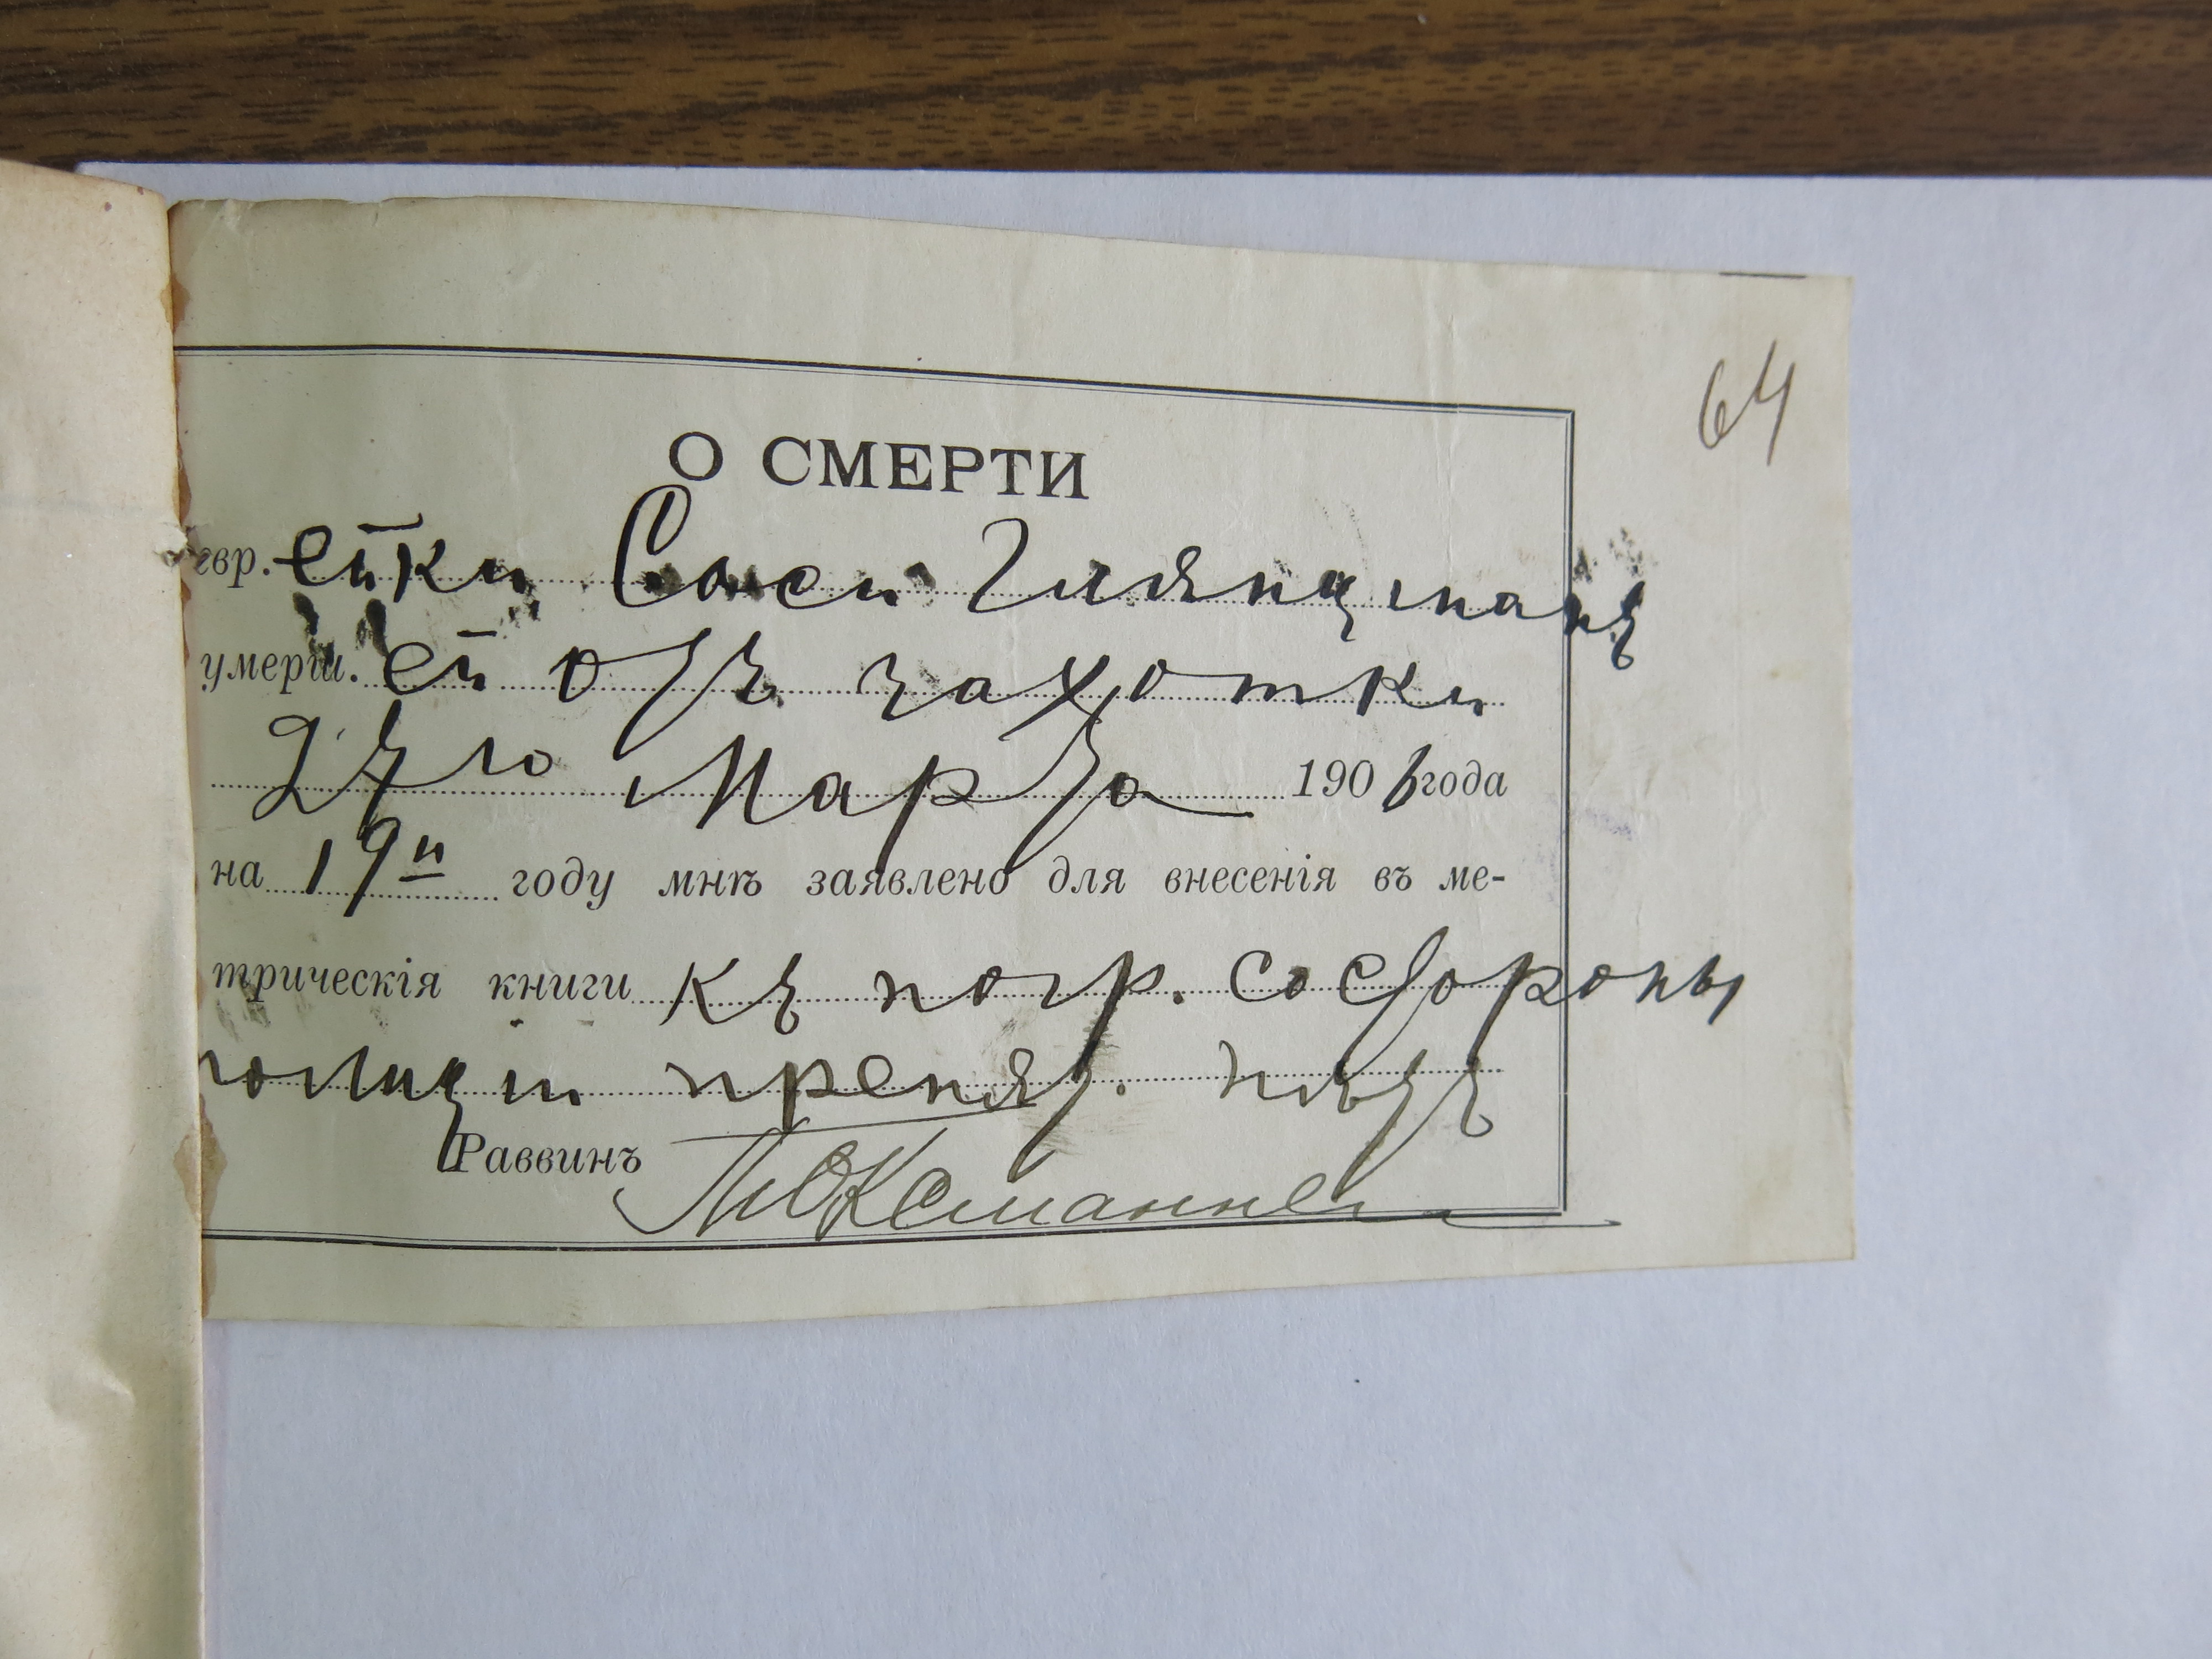 64
О СМЕРТИ
евр. ейки Соси Глянцшпанъ
умерш. ей отъ чахотки
27го Марта 1906 года
на 19й году мнѣ заявлено для внесенія въ ме-
трическія книги къ погр. со стороны
полиціи препят. нѣтъ
Раввинъ